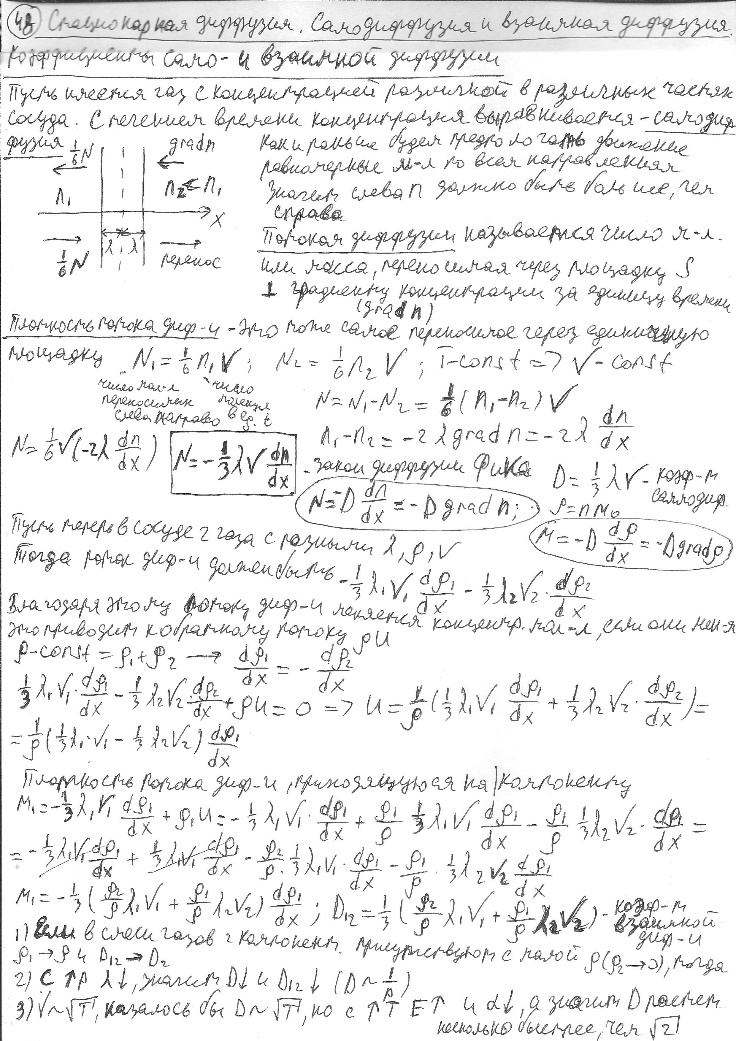 48 Стационарная диффузия. Самодиффузия и взаимная диффузия.
Коэффициенты само- и взаимной диффузии
Пусть имеется газ с концентрацией различной в различных частях
сосуда. С течением времени концентрация выравнивается - самодиф
фузия
1/6 N gradn
n₁ n₂<n₁
x
λ λ
1/6 N перенос
Как и раньше будем предпологать движение
равномерные м-л по всем направлениям
Значит слева n должно быть больше, чем
справа
Потоком диффузии называется число м-л.
или масса, переносимая через площадку S
⊥ градиенту концентрации за единицу времени
(grad n)
Плотность потока диф-и - это тоже самое переносимое через единичную
площадку N₁ = 1/6 n₁V ; N₂ = 1/6 n₂V ; T-const => V-const
число мол-л переносимых слева направо в ед. t
N = N₁ - N₂ = 1/6 (n₁ - n₂) V
n₁ - n₂ = -2λ grad n = -2λ dn/dx
N = 1/6 V (-2λ dn/dx) N = -1/3 λV dn/dx - закон диффузии Фика D = 1/3 λV - коэф-т
самодиф.
N = -D dn/dx = -D grad n; ρ = nm₀
M = -D dρ/dx = -D gradρ
Пусть теперь в сосуде 2 газа с разными λ, ρ, V
Тогда поток диф-и должен быть -1/3 λ₁V₁ dρ₁/dx - 1/3 λ₂V₂ · dρ₂/dx
Благодаря этому потоку диф-и меняется концентр. мол-л, если они
это приводит к обратному потоку ρU
ρ-const = ρ₁+ρ₂ → dρ₁/dx = - dρ₂/dx
1/3 λ₁V₁ · dρ₁/dx - 1/3 λ₂V₂ · dρ₂/dx + ρU = 0 => U = 1/ρ (1/3 λ₁V₁ dρ₁/dx + 1/3 λ₂V₂ · dρ₂/dx) =
= 1/ρ (1/3 λ₁·V₁ - 1/3 λ₂V₂) dρ₁/dx
Плотность потока диф-и, приходящуюся на 1 компоненту
M₁ = -1/3 λ₁V₁ dρ₁/dx + ρ₁U = -1/3 λ₁V₁ · dρ₁/dx + ρ₁/ρ 1/3 λ₁V₁ dρ₁/dx - ρ₁/ρ 1/3 λ₂V₂ · dρ₁/dx =
= -1/3 λ₁V₁ dρ₁/dx + 1/3 λ₁V₁ dρ₁/dx - ρ₂/ρ · 1/3 λ₁V₁ · dρ₁/dx - ρ₁/ρ · 1/3 λ₂V₂ dρ₁/dx
M₁ = -1/3 (ρ₂/ρ λ₁V₁ + ρ₁/ρ λ₂V₂) dρ₁/dx ; D₁₂ = 1/3 (ρ₂/ρ λ₁V₁ + ρ₁/ρ λ₂V₂) - коэф-т
взаимной
диф-и
1) Если в смеси газов 2 компонент. присутствуют с малой ρ (ρ₂→0), тогда
ρ₁→ρ и D₁₂→D₂
2) С ↑P λ↓, значит D↓ и D₁₂↓ (D ~ 1/P)
3) V~√T, казалось бы D~√T, но с ↑T E↑ и d↓, а значит D растет
несколько быстрее, чем √T